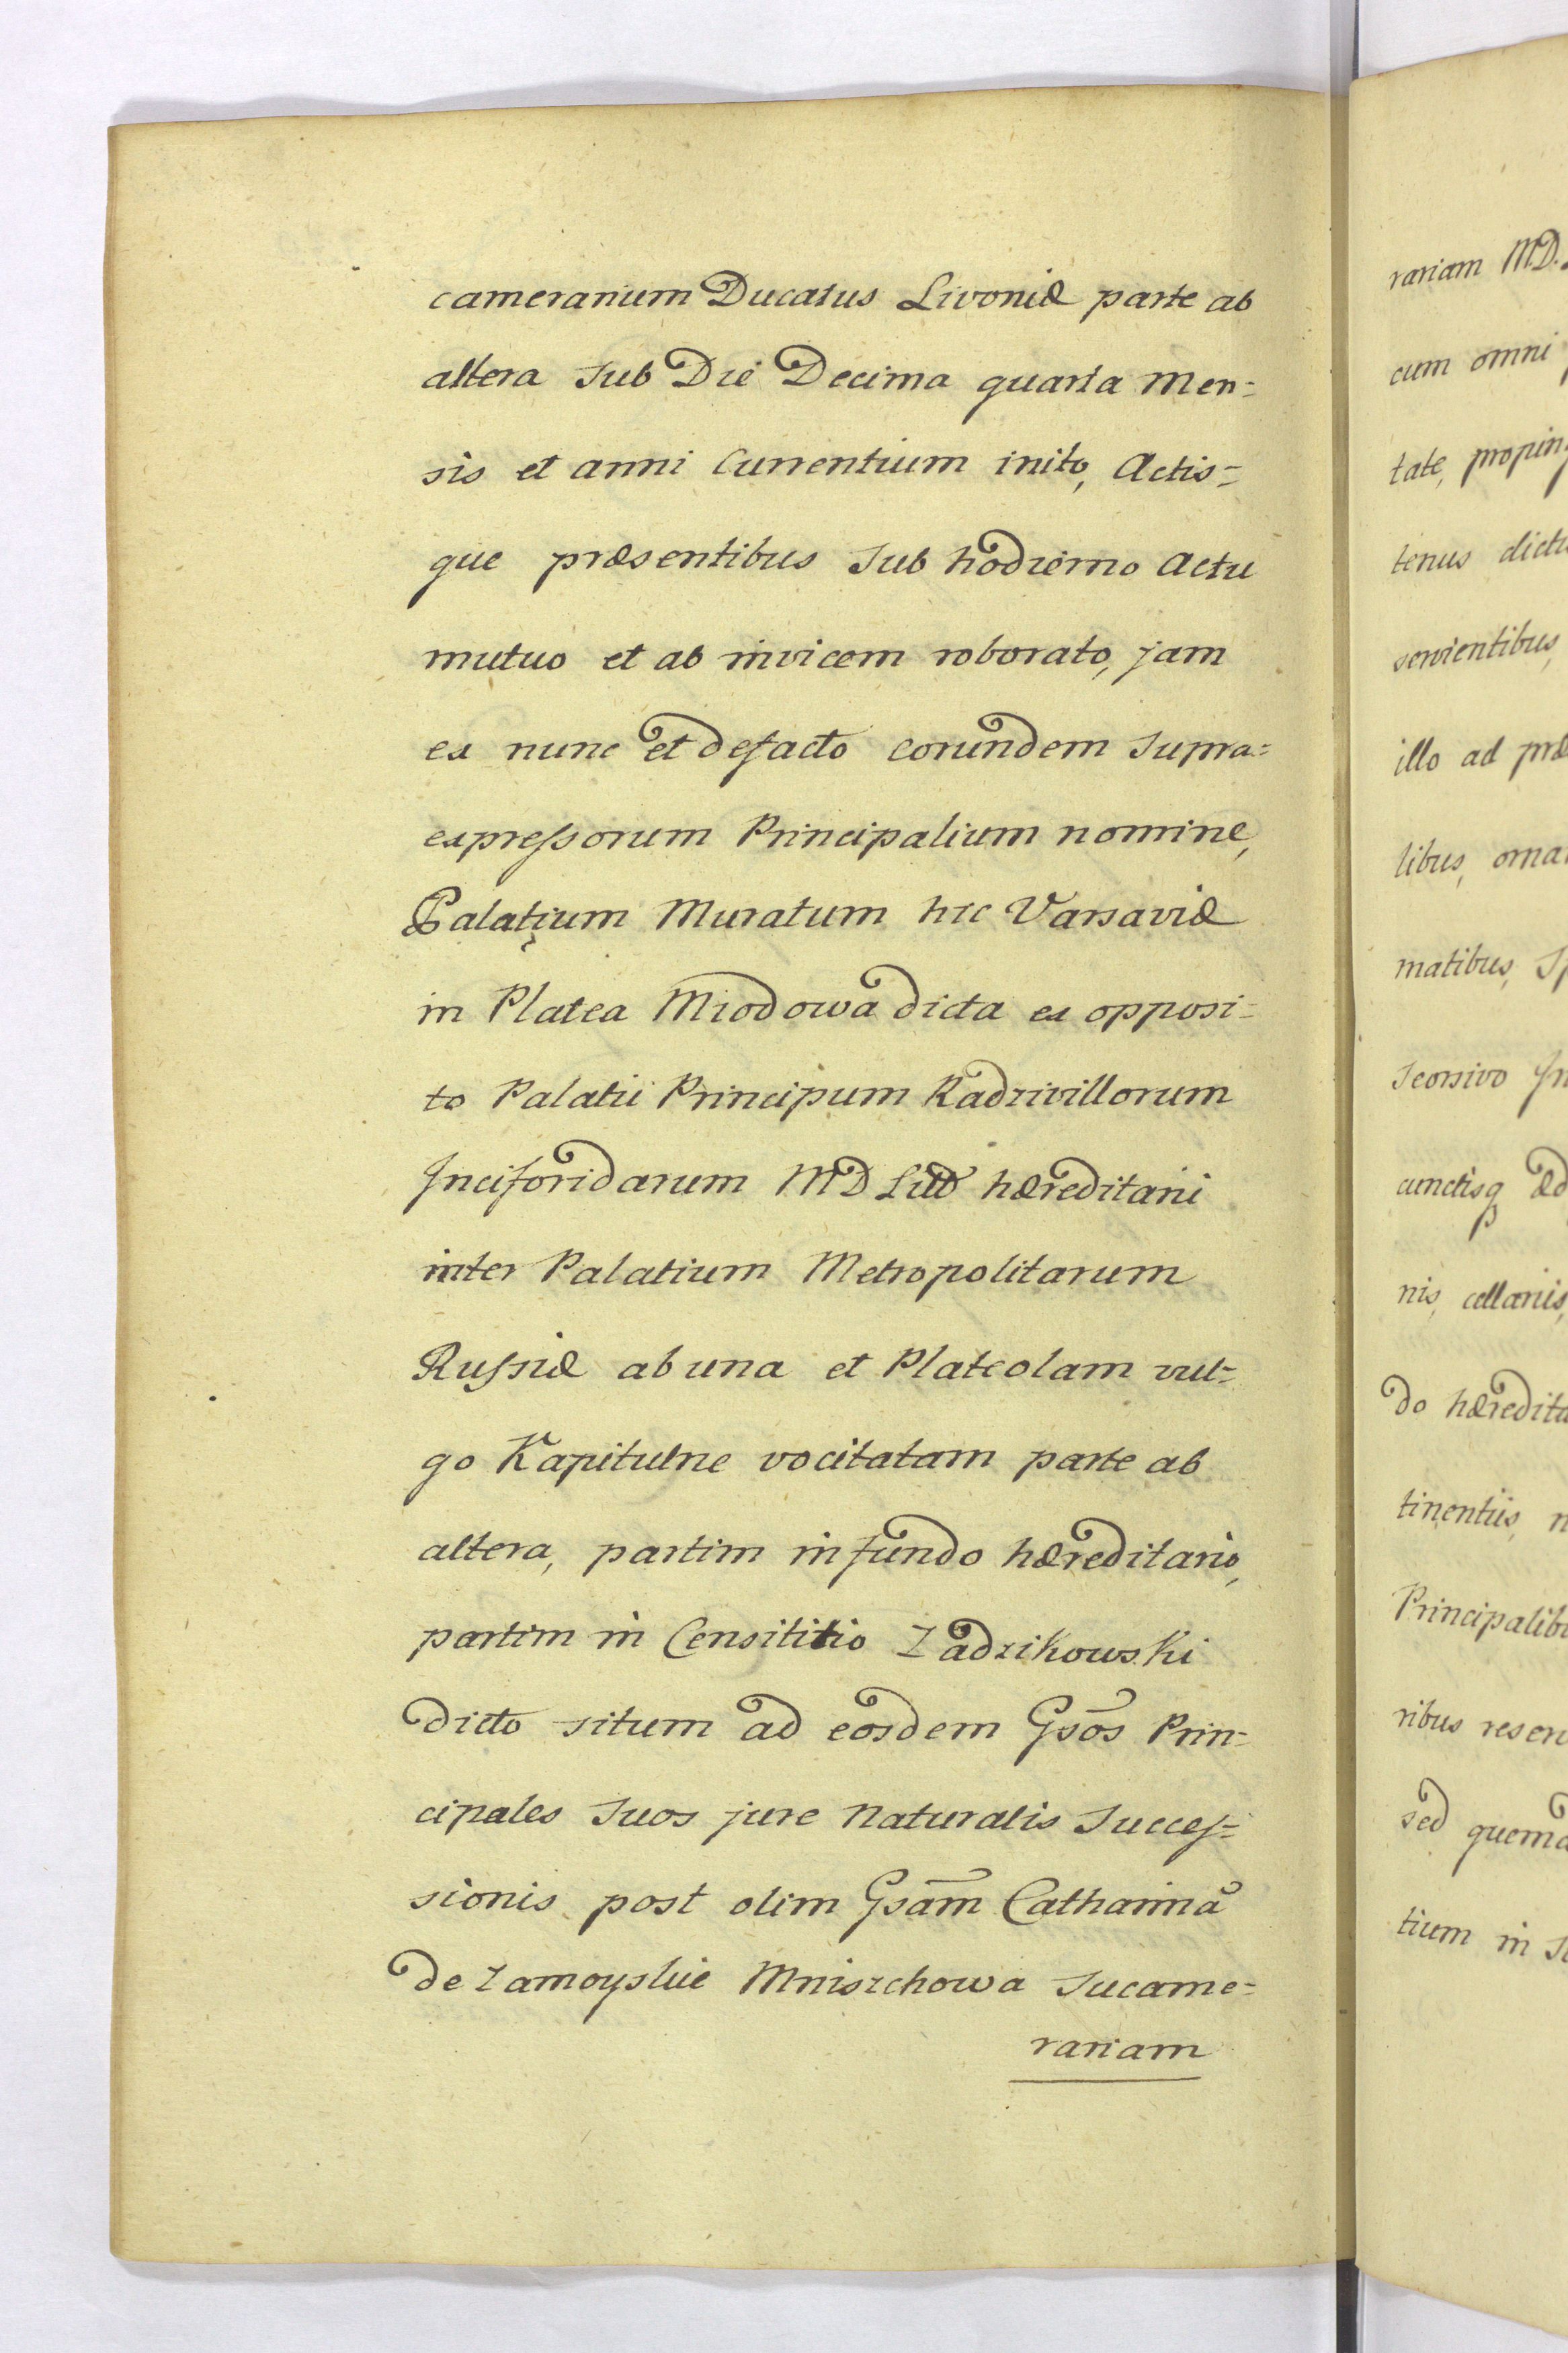 camerarium Ducatus Livoniæ parte ab
altera sub Die Decima quarta Men=
sis et anni Currentium inito, Actis=
que præsentibus sub hodierno Actu
mutuo et ab invicem roborato, jam
ex nunc et defacto eorundem supra=
expressorum Principalium nomine,
Palatium Muratum hic Varsaviæ
in Platea Miodowa dicta ex opposi=
to Palatii Principum Radzivillorum
Inciforidarum MD Litt hæreditarii
inter Palatium Metropolitarum
Russiæ ab una et Plateolam vul=
go Kapitulne vocitatam parte ab
altera, partim in fundo hæreditario,
partim in Censititio Zadzikowski
dicto situm ad eosdem Gsos Prin=
cipales suos jure Naturalis Succes=
sionis post olim Gsam Catharina
de Zamoyskie Mniszchowa Sucame=
rariam
rariam MD.
cum omni
tate, propin
tenus dict
servientibus,
illo ad præ
libus, orna
matibus, Sp
seorsivo In
cunctisq æd
nis, cellariis,
do hæredita
tinentiis, n
Principalib
ribus reser
sed quema
tium in s